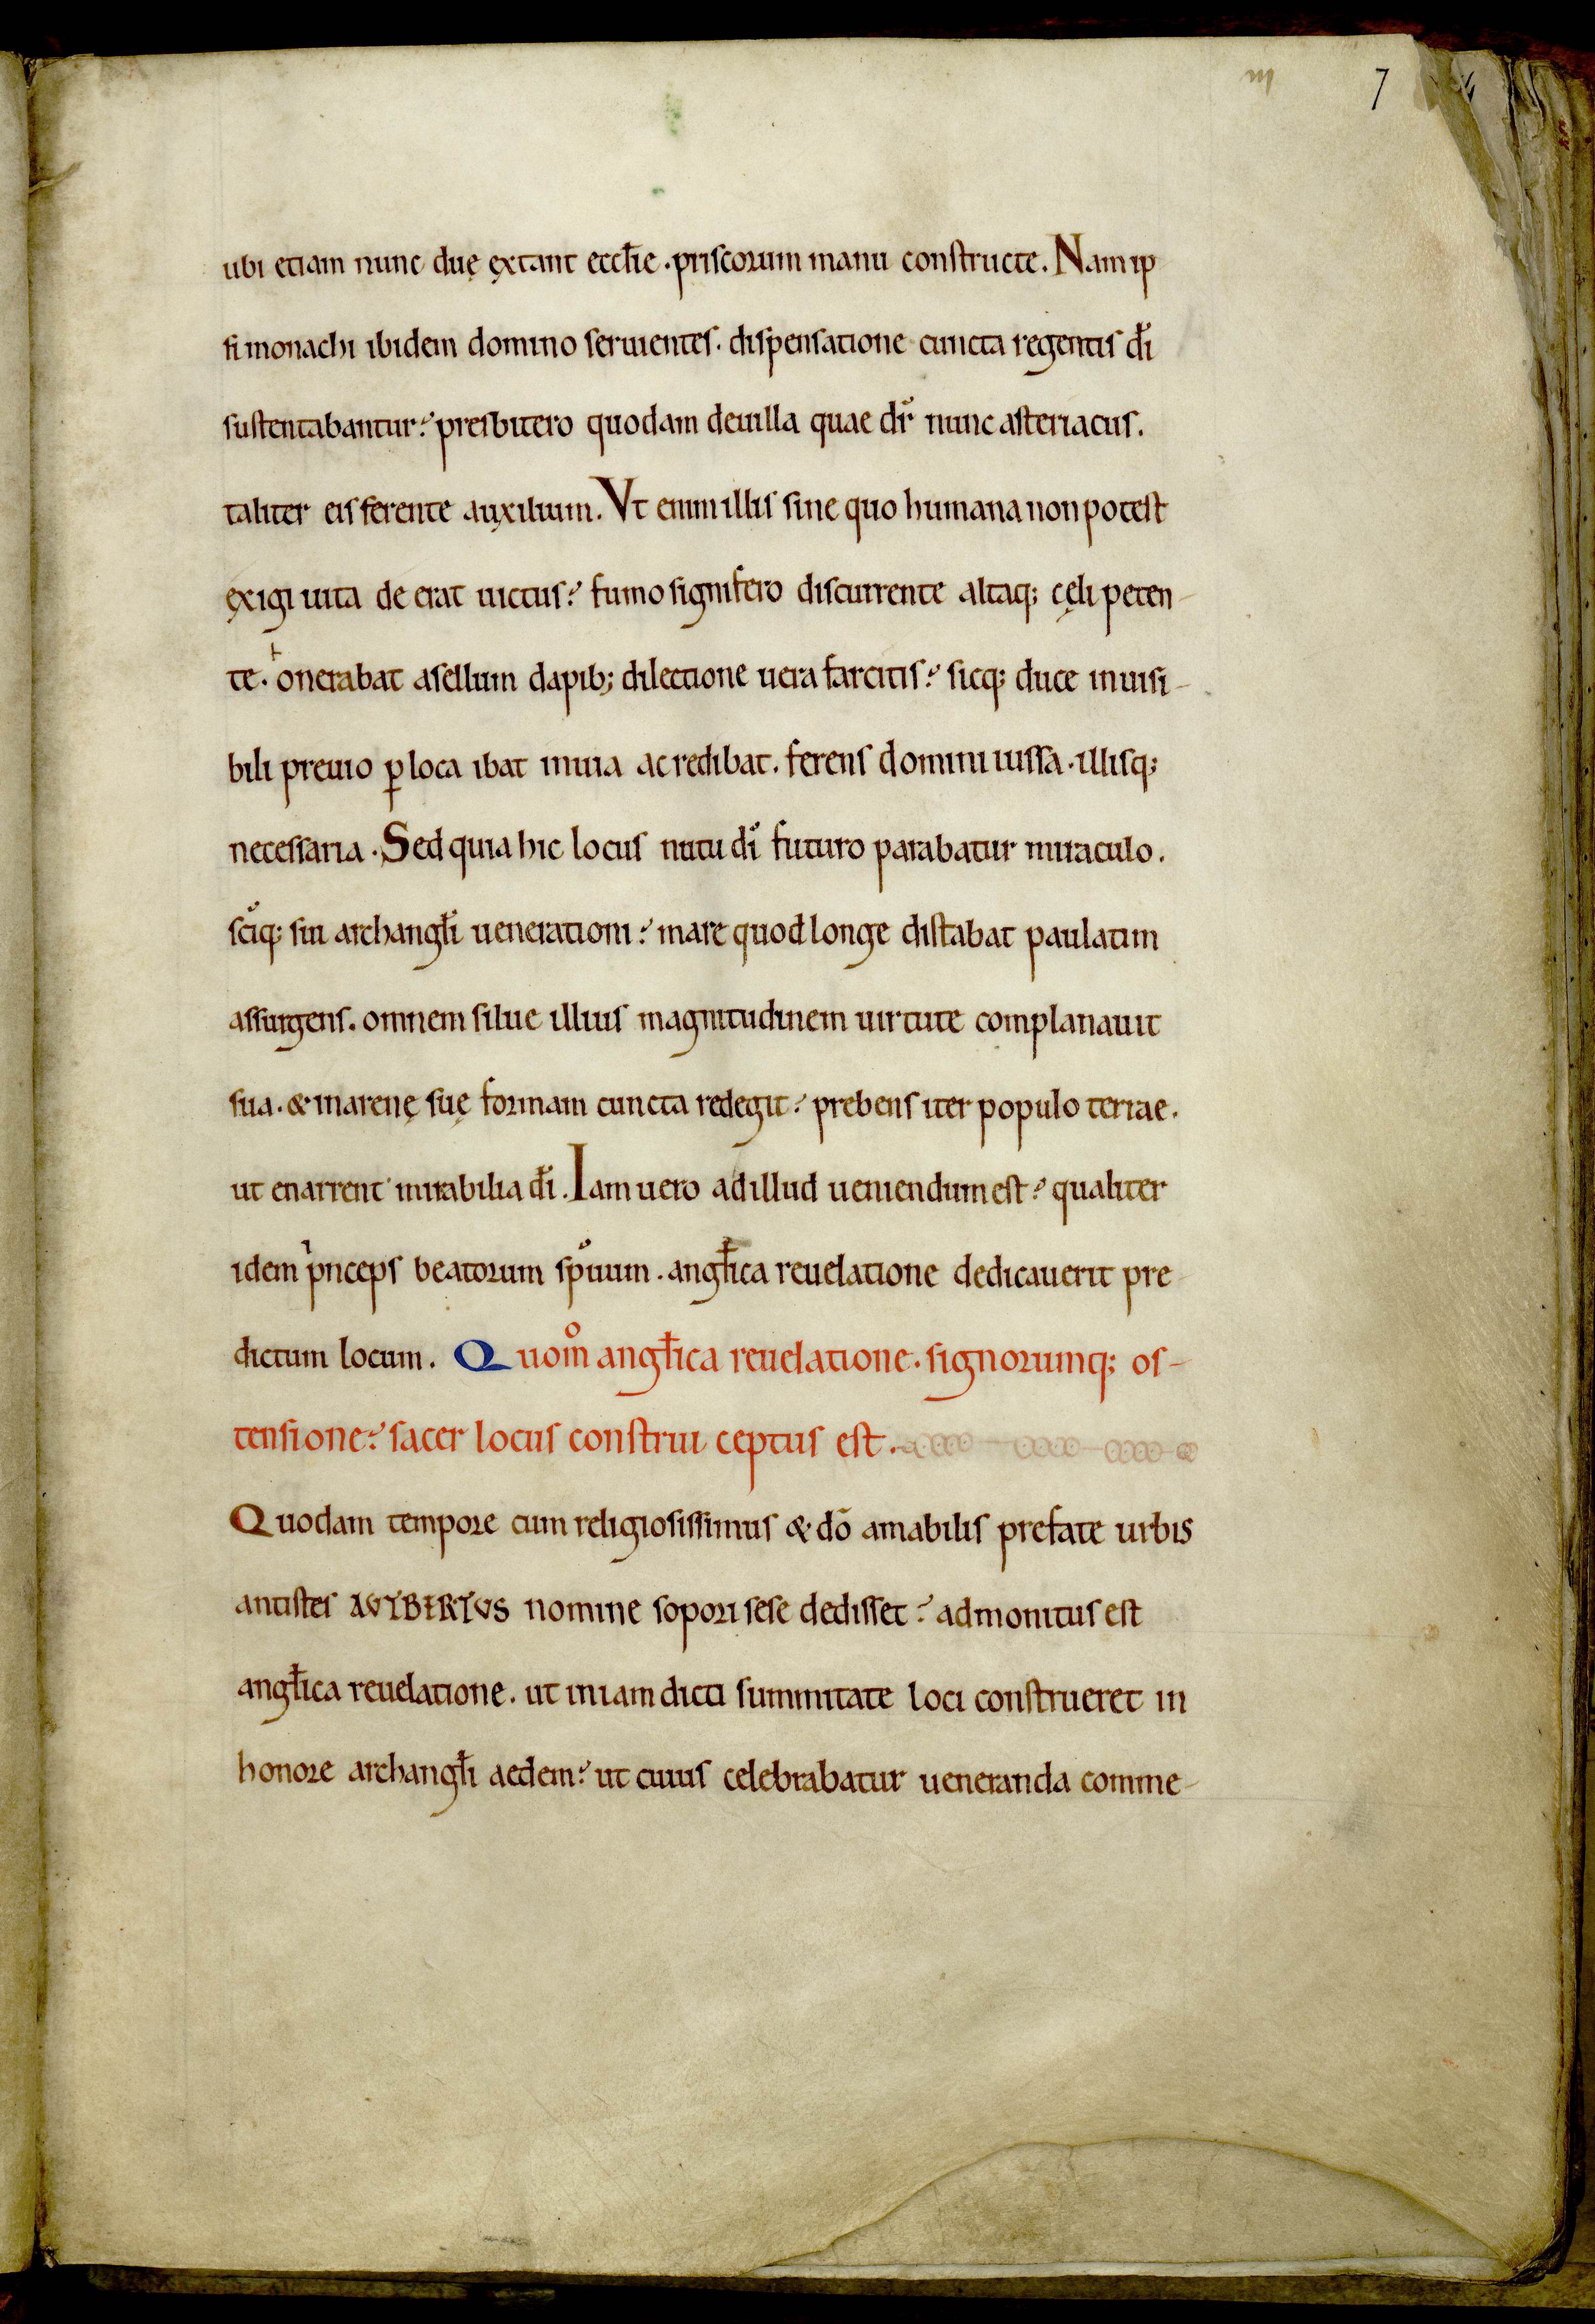 m 7
ubi etiam nunc duę ęxtant eccłie . priscorum manu constructe. Nam ip
si monachi ibidem domino seruientes. dispensatione cuncta regentis dĩ
sustentabantur? presbitero quodam deuilla quae dr̃ nunc asteriacus.
taliter eis ferente auxilium. Vt enim illis sine quo humana non potest
ęxigi uita de erat uictus? fumo signifero discurrente altaq; cęli peten-
te. onerabat asellum dapib; dilectione uera farcitis? sicq; duce inuisi-
bili preuio ꝑ loca ibat inuia ac redibat. ferens domini iussa. illisq;
necessaria. Sed quia hic locus nutu dĩ futuro parabatur miraculo.
scĩq; sui archangłi uenerationi? mare quod longe distabat paulatim
assurgens. omnem silue illius magnitudinem uirtute complanauit
sua. & inarenę suę formam cuncta redegit? prebens iter populo terrae.
ut enarrent mirabilia dĩ. Iam uero ad illud ueniendum est? qualiter
idem pͥnceps beatorum sp̃uum. angłica reuelatione dedicauerit pre
dictum locum. Quom̊ angłica reuelatione. signorumq; os-
tensione? sacer locus construi ceptus est.
Quodam tempore cum religiosissimus & dō amabilis prefate urbis
antistes AUTBERTUS nomine sopori sese dedisset? admonitus est
angłica reuelatione. ut iniam dicti summitate loci construeret in
honore archangłi aedem? ut cuius celebrabatur ueneranda comme-